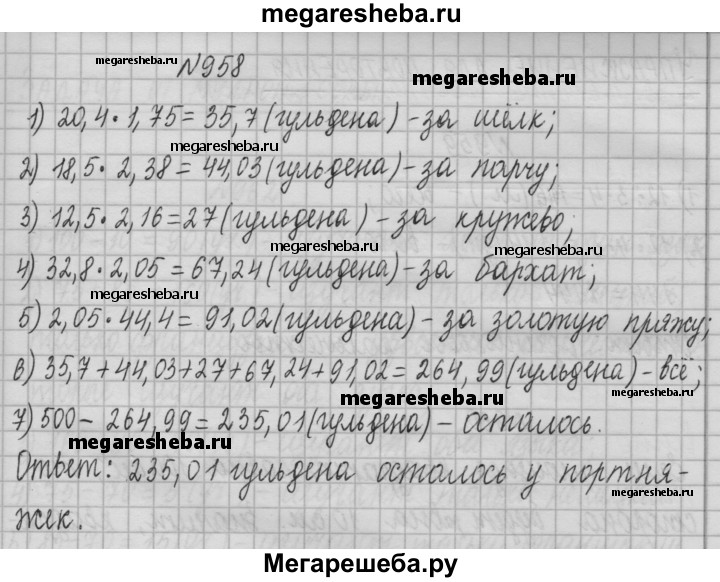 megaresheba.ru
№958
megaresheba.ru
megaresheba.ru
1) 20,4 • 1,75 = 35,7 (гульдена) - за шёлк;
megaresheba.ru
2) 18,5 • 2,38 = 44,03 (гульдена) - за парчу;
3) 12,5 • 2,16 = 27 (гульдена) - за кружево;
megaresheba.ru
4) 32,8 • 2,05 = 67,24 (гульдена) - за бархат;
megaresheba.ru
5) 2,05 • 44,4 = 91,02 (гульдена) - за золотую пряжу;
6) 35,7 + 44,03 + 27 + 67,24 + 91,02 = 264,99 (гульдена) - всё;
megaresheba.ru
megaresheba.ru
7) 500 - 264,99 = 235,01 (гульдена) - осталось.
megaresheba.ru
Ответ: 235,01 гульдена осталось у портня-
megaresheba.ru
жек.
Мегарешеба.ру